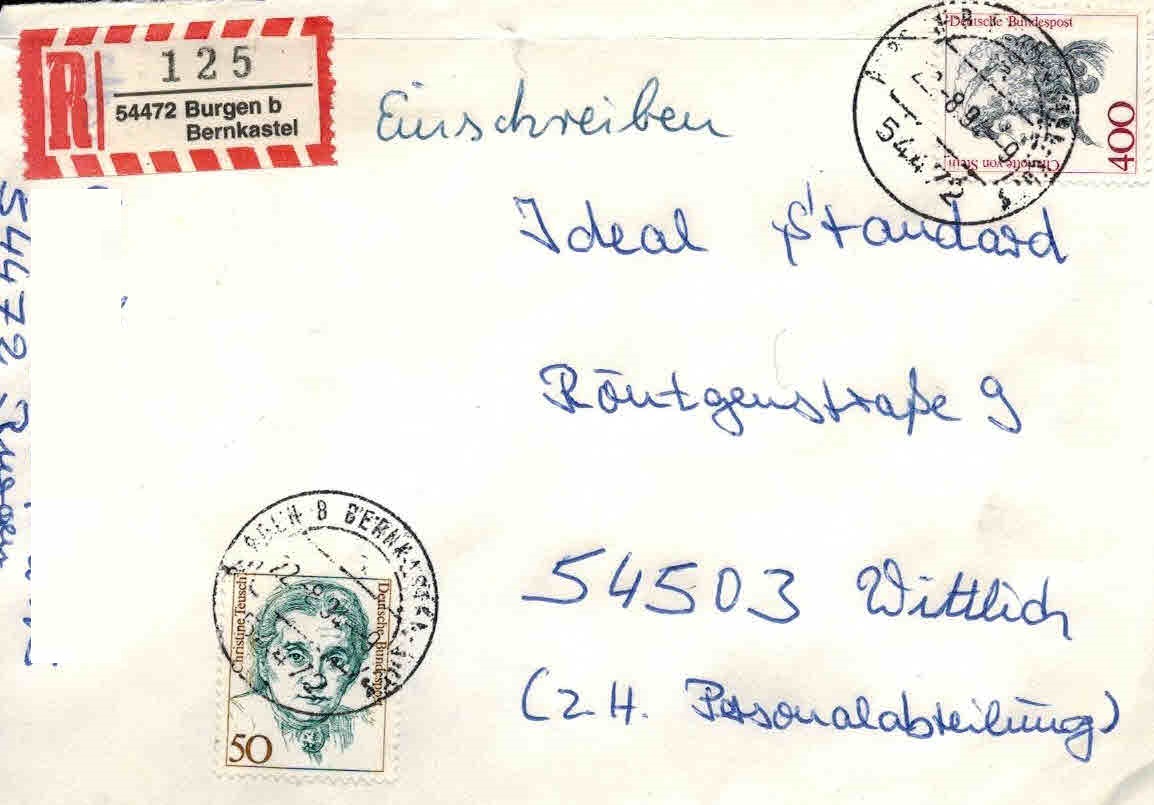 R 125
54472 Burgen b
Bernkastel
Einschreiben
Deutsche Bundespost
Charlotte von Stein
400
54472
Ideal Standard
Röntgenstraße 9
54503 Wittlich
(z.H. Personalabteilung)
54472 Burgen
BERNKASTEL
Christine Teusch
Deutsche Bundespost
50